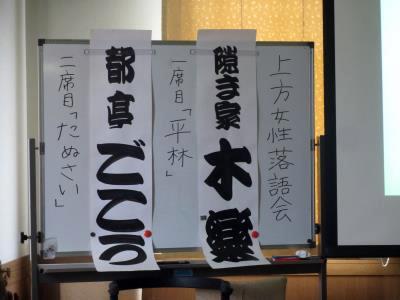 上方女性落語会
隙ま家
木楽
一席目「平林」
都亭
ごこう
二席目「たぬさい」